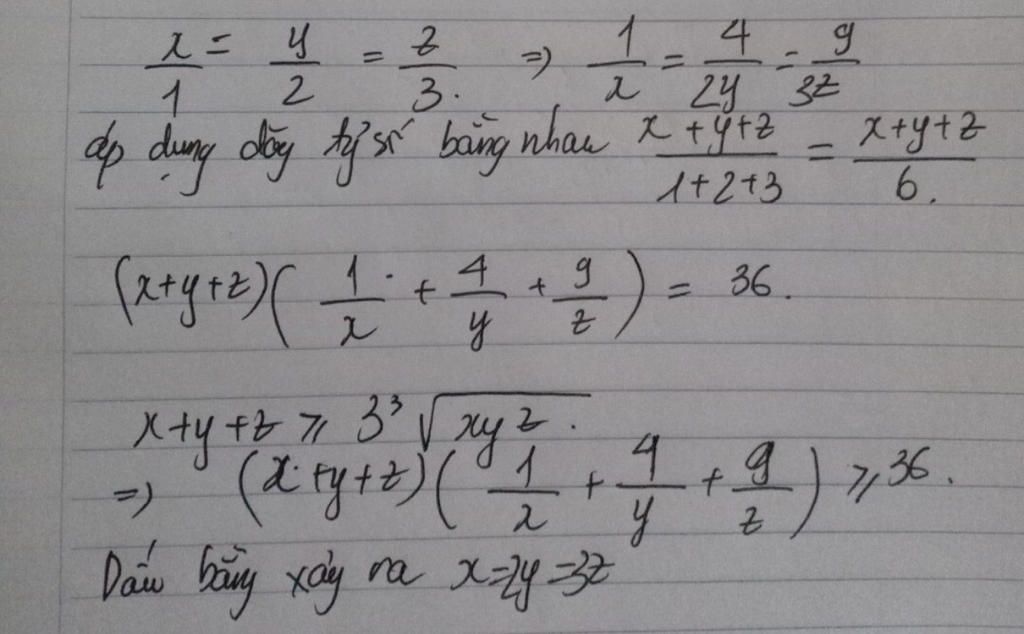 x/1 = y/2 = z/3. => 1/x = 4/2y = 9/3z
áp dụng dãy tỷ số bằng nhau x+y+z/1+2+3 = x+y+z/6.
(x+y+z)(1/x + 4/y + 9/z) = 36.
x+y+z ⩾ 3³√xyz.
=> (x+y+z)(1/x + 4/y + 9/z) ⩾ 36.
Dấu bằng xảy ra x=2y=3z